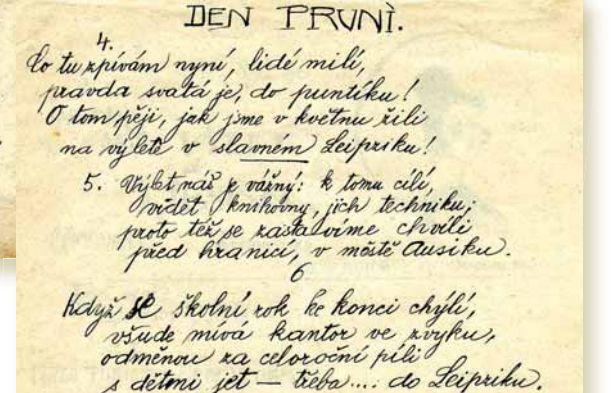 DEN PRVNÍ.
4.
Co tu zpívám nyní, lidé milí,
pravda svatá je, do puntíku!
O tom pěji, jak jsme v květnu žili
na výletě v slavném Leipziku!
5. Výlet náš je vážný: k tomu cílí,
vidět knihovny, jich techniku;
proto též se zastavíme chvíli
před hranicí, v městě Ausiku.
6
Když se školní rok ke konci chýlí,
všude mívá kantor ve zvyku,
odměnou za celoroční píli
s dětmi jet — třeba.... do Leipziku.